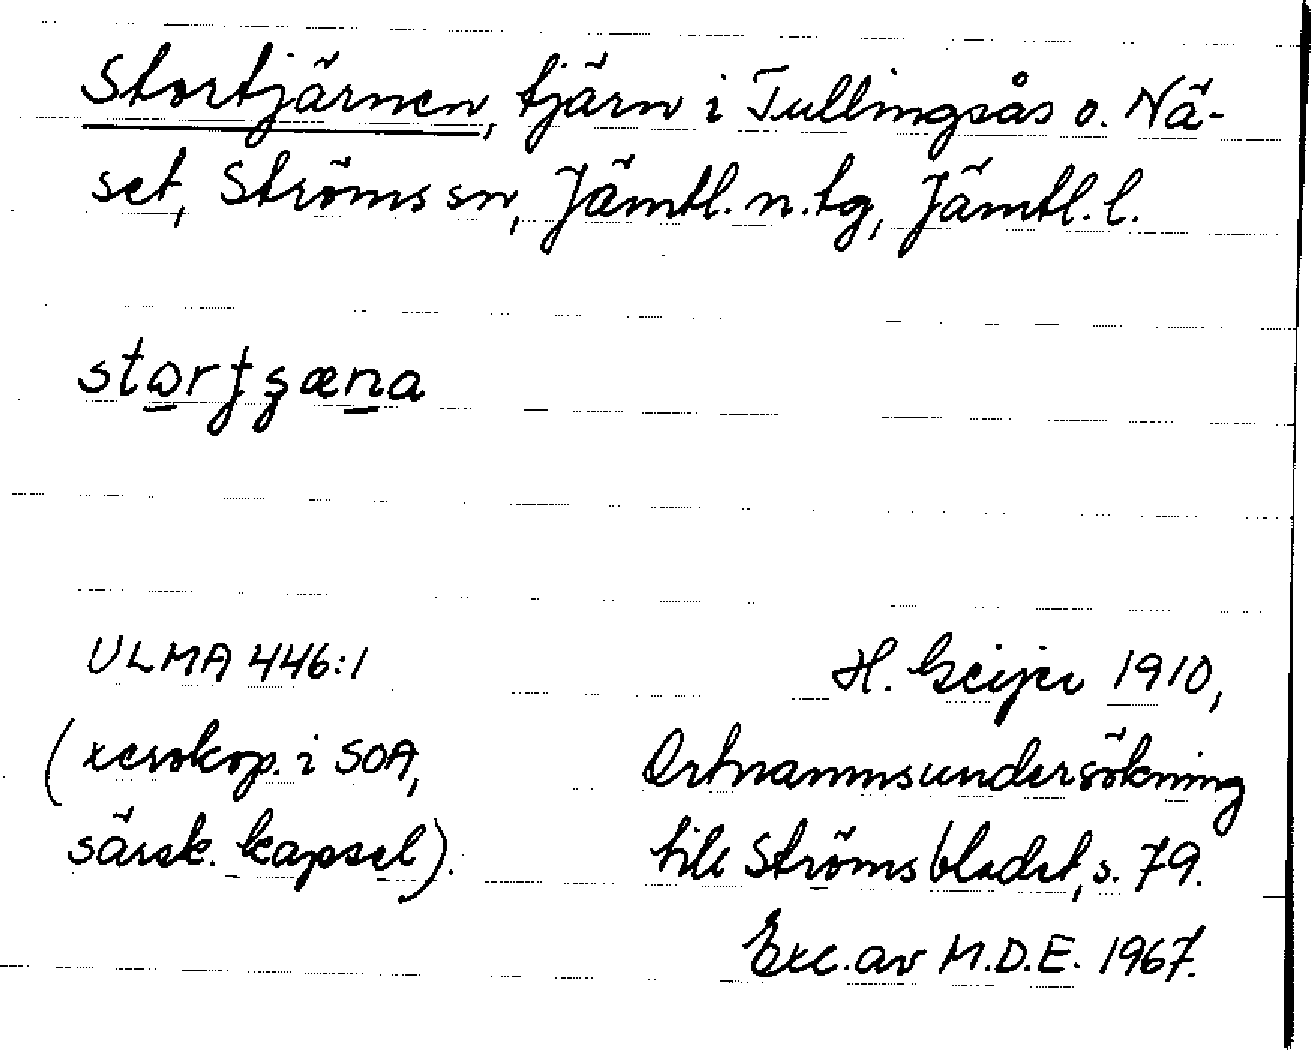 Stortjärnen, tjärn i Tullingsås o. Nä-
set, Ströms sn, Jämtl. n. tg, Jämtl. l.
stɷrʄʓæna
ULMA 446:1
(xerokop. i SOA,
särsk. kapsel).
H. Geijer 1910,
Ortnamnsundersökning
till Strömsbladet, s. 79.
Exc. av M.D.E. 1967.